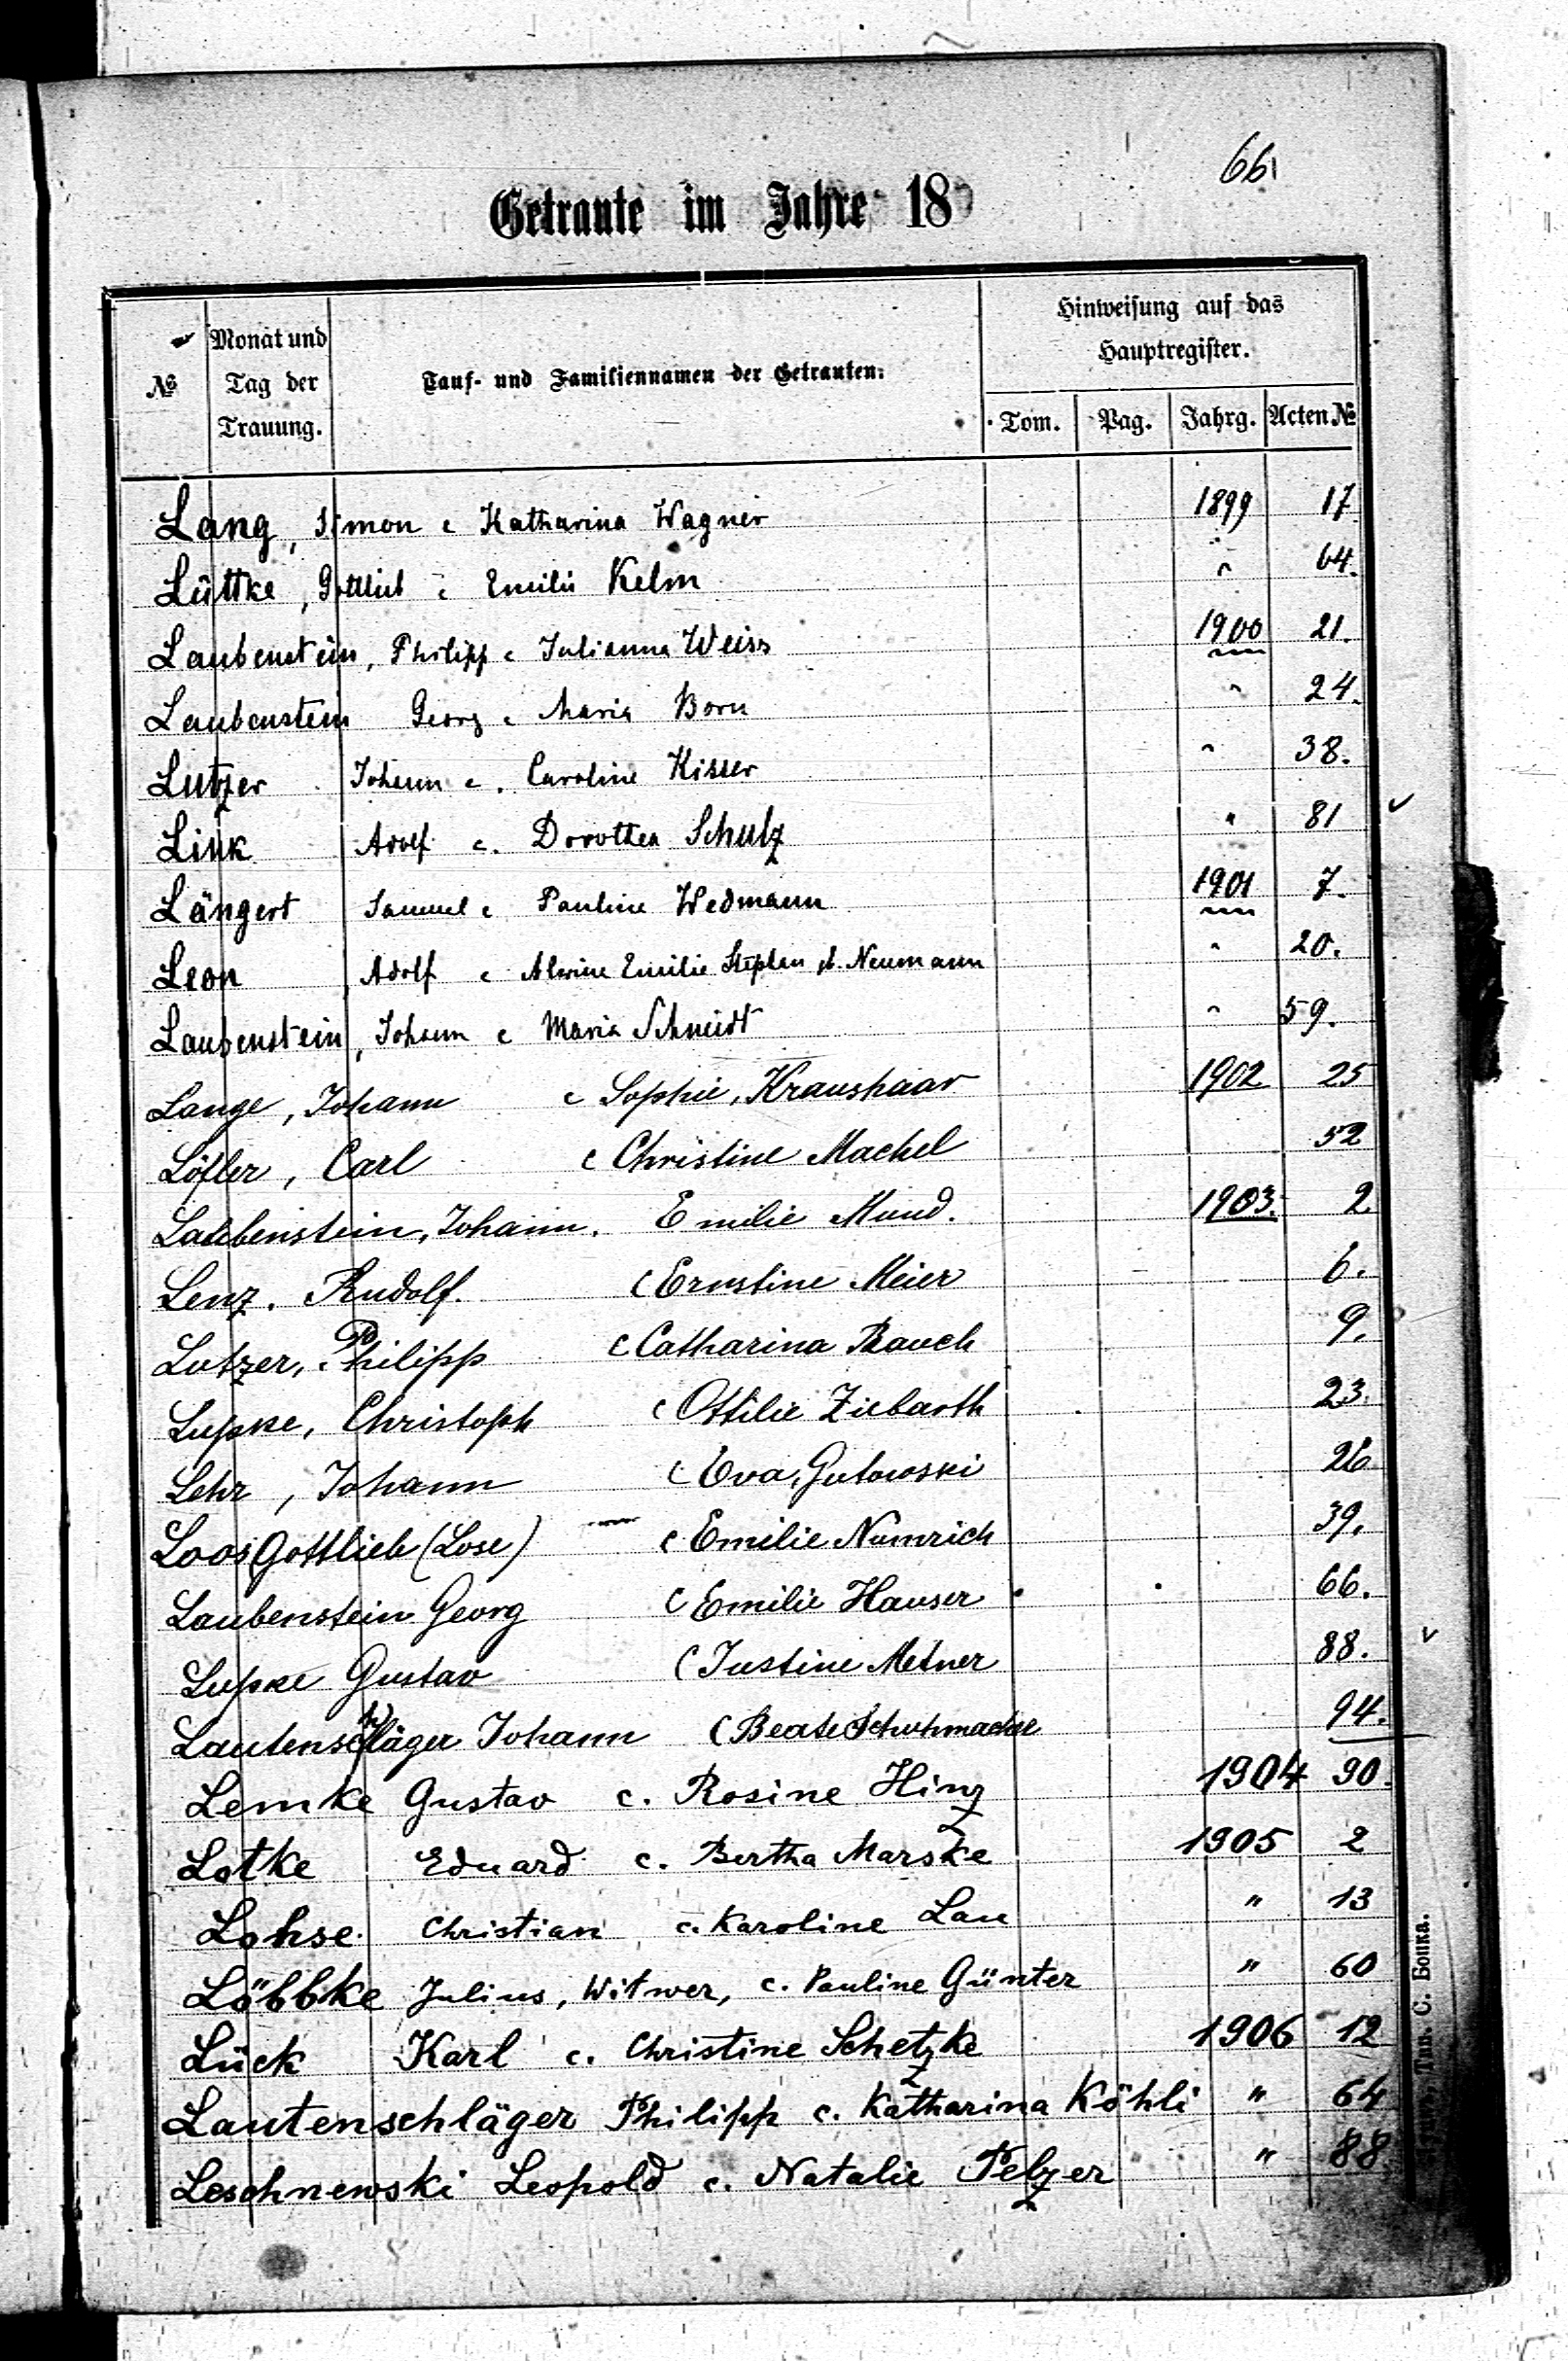 66
Getraute im Jahre 18
№ Monat und Tag der Trauung. Tauf- und Familiennamen der Getrauten. Hinweisung auf das Hauptregister.
Tom. Pag. Jahrg. Acten №
Lang, Simon c Katharina Wagner 1899 17
Lüttke, Gottlieb c Emilie Kelm " 64.
Laubenstein, Philipp c Julianna Weiss 1900 21.
Laubenstein Georg c Maria Born " 24.
Lutzer Johann c. Caroline Kisser " 38.
Link Adolf c. Dorothea Schulz " 81
Längert Samuel c Pauline Wedmann 1901 7.
Leon Adolf c Alwine Emilie Stephan Neumann " 20.
Laubenstein, Johann c Maria Schmidt " 59.
Lange, Johann c Sophie, Kraushaar 1902 25
Löfler, Carl c Christine Machel 52
Laubenstein, Johann. Emilie Mund. 1903. 2
Lenz. Rudolf. c Ernstine Meier 6.
Lutzer, Philipp c Catharina Rauch 9.
Lupke, Christoph c Ottilie Ziebarth 23.
Lehr, Johann c Eva, Gutowski 26
Loos Gottlieb (Lose) c Emilie Numrich 39.
Laubenstein Georg c Emilie Hauser 66.
Lupke Gustav c Justine Metner 88.
Lautenschläger Johann c Beate Schuhmacher 94.
Lemke Gustav c. Rosine Hinz 1904 90.
Lotke Eduard c. Bertha Marske 1905 2
Lohse Christian c. Karoline Lau " 13
Löbbke Julius, Witwer, c. Pauline Günter " 60
Lück Karl c. Christine Schetzke 1906 12
Lautenschläger Philipp c. Katharina Köhli " 64
Leschnewski Leopold c. Natalie Pelzer " 88
Тип. С. Бонка.